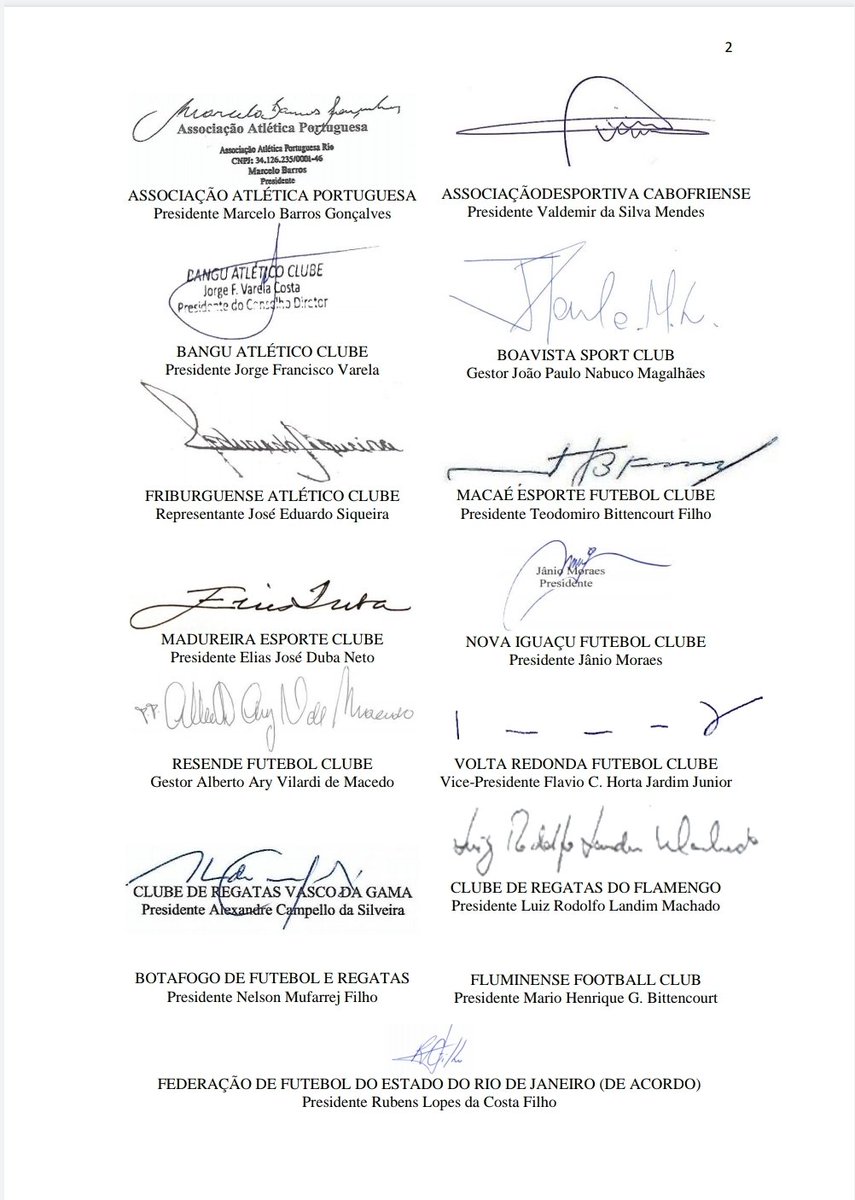 2
Marcelo Barros Gonçalves
Associação Atlética Portuguesa
Associação Atlética Portuguesa Rio
CNPJ: 34.126.235/0001-46
Marcelo Barros
Presidente
ASSOCIAÇÃO ATLÉTICA PORTUGUESA
Presidente Marcelo Barros Gonçalves
ASSOCIAÇÃODESPORTIVA CABOFRIENSE
Presidente Valdemir da Silva Mendes
BANGU ATLÉTICO CLUBE
Jorge F. Varela Costa
Presidente do Conselho Diretor
BANGU ATLÉTICO CLUBE
Presidente Jorge Francisco Varela
BOAVISTA SPORT CLUB
Gestor João Paulo Nabuco Magalhães
FRIBURGUENSE ATLÉTICO CLUBE
Representante José Eduardo Siqueira
MACAÉ ESPORTE FUTEBOL CLUBE
Presidente Teodomiro Bittencourt Filho
MADUREIRA ESPORTE CLUBE
Presidente Elias José Duba Neto
Jânio Moraes
Presidente
NOVA IGUAÇU FUTEBOL CLUBE
Presidente Jânio Moraes
RESENDE FUTEBOL CLUBE
Gestor Alberto Ary Vilardi de Macedo
VOLTA REDONDA FUTEBOL CLUBE
Vice-Presidente Flavio C. Horta Jardim Junior
CLUBE DE REGATAS VASCO DA GAMA
Presidente Alexandre Campello da Silveira
Luiz Rodolfo Landim Machado
CLUBE DE REGATAS DO FLAMENGO
Presidente Luiz Rodolfo Landim Machado
BOTAFOGO DE FUTEBOL E REGATAS
Presidente Nelson Mufarrej Filho
FLUMINENSE FOOTBALL CLUB
Presidente Mario Henrique G. Bittencourt
FEDERAÇÃO DE FUTEBOL DO ESTADO DO RIO DE JANEIRO (DE ACORDO)
Presidente Rubens Lopes da Costa Filho